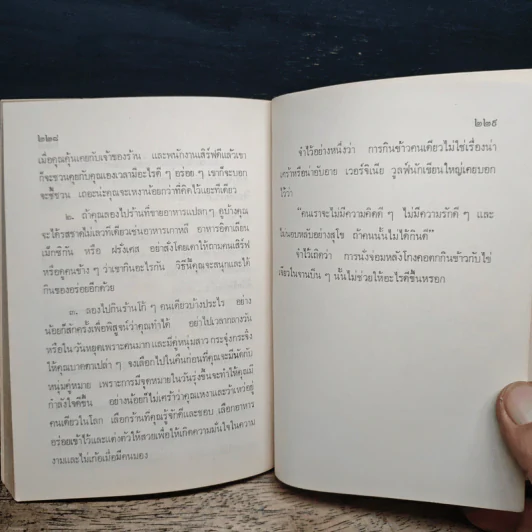 ๒๒๘
เมื่อคุณคุ้นเคยกับเจ้าของร้าน และพนักงานเสิร์ฟดีแล้วเขา
ก็จะชวนคุยกับคุณเองเวลามีอะไรดี ๆ อร่อย ๆ เขาก็จะบอก
จะชี้ชวน เถอะน่ะคุณจะเหงาน้อยกว่าที่คิดไว้เยอะทีเดียว
๒. ถ้าคุณลองไปร้านที่ขายอาหารแปลกๆ ดูบ้างคุณ
จะได้รสชาดไม่เลวทีเดียวเช่นอาหารเกาหลี อาหารอิตาเลียน
เม็กซิกัน หรือ ฝรั่งเศส อย่าสั่งโดยเดาให้ถามคนเสิร์ฟ
หรือดูคนข้าง ๆ ว่าเขากินอะไรกัน วิธีนี้คุณจะสนุกและได้
กินของอร่อยอีกด้วย
๓. ลองไปกินร้านโก้ ๆ คนเดียวบ้างประไร อย่าง
น้อยก็สักครั้งเพื่อพิสูจน์ว่าคุณทำได้ อย่าไปเวลากลางวัน
หรือในวันหยุดเพราะคนมาก และมีคู่หนุ่มสาว กระจุ๋งกระจิ๋ง
ให้คุณบาดตาเปล่า ๆ จงเลือกไปในคืนก่อนที่คุณจะมีนัดกับ
หนุ่มคู่หมาย เพราะการมีจุดหมายในวันรุ่งขึ้นจะทำให้คุณมี
กำลังใจดีขึ้น อย่างน้อยก็ไม่เศร้าว่าคุณเหงาและว้าเหว่อยู่
คนเดียวในโลก เลือกร้านที่คุณรู้จักดีและชอบ เลือกอาหาร
อร่อยเข้าไว้และแต่งตัวให้สวยเพื่อให้เกิดความมั่นใจในความ
งามและไม่เก้อเมื่อมีคนมอง
๒๒๙
จำไว้อย่างหนึ่งว่า การกินข้าวคนเดียวไม่ใช่เรื่องน่า
เศร้าหรือน่าอับอาย เวอร์จิเนีย วูลฟ์นักเขียนใหญ่เคยบอก
ไว้ว่า
"คนเราจะไม่มีความคิดดี ๆ ไม่มีความรักดี ๆ และ
ไม่นอนหลับอย่างสุโข ถ้าคนนั้นไม่ได้กินดี"
จำไว้เถิดว่า การนั่งจ๋อมหลังโกงคอตกกินข้าวกับไข่
เจียวในจานบิ่น ๆ นั้นไม่ช่วยให้อะไรดีขึ้นหรอก